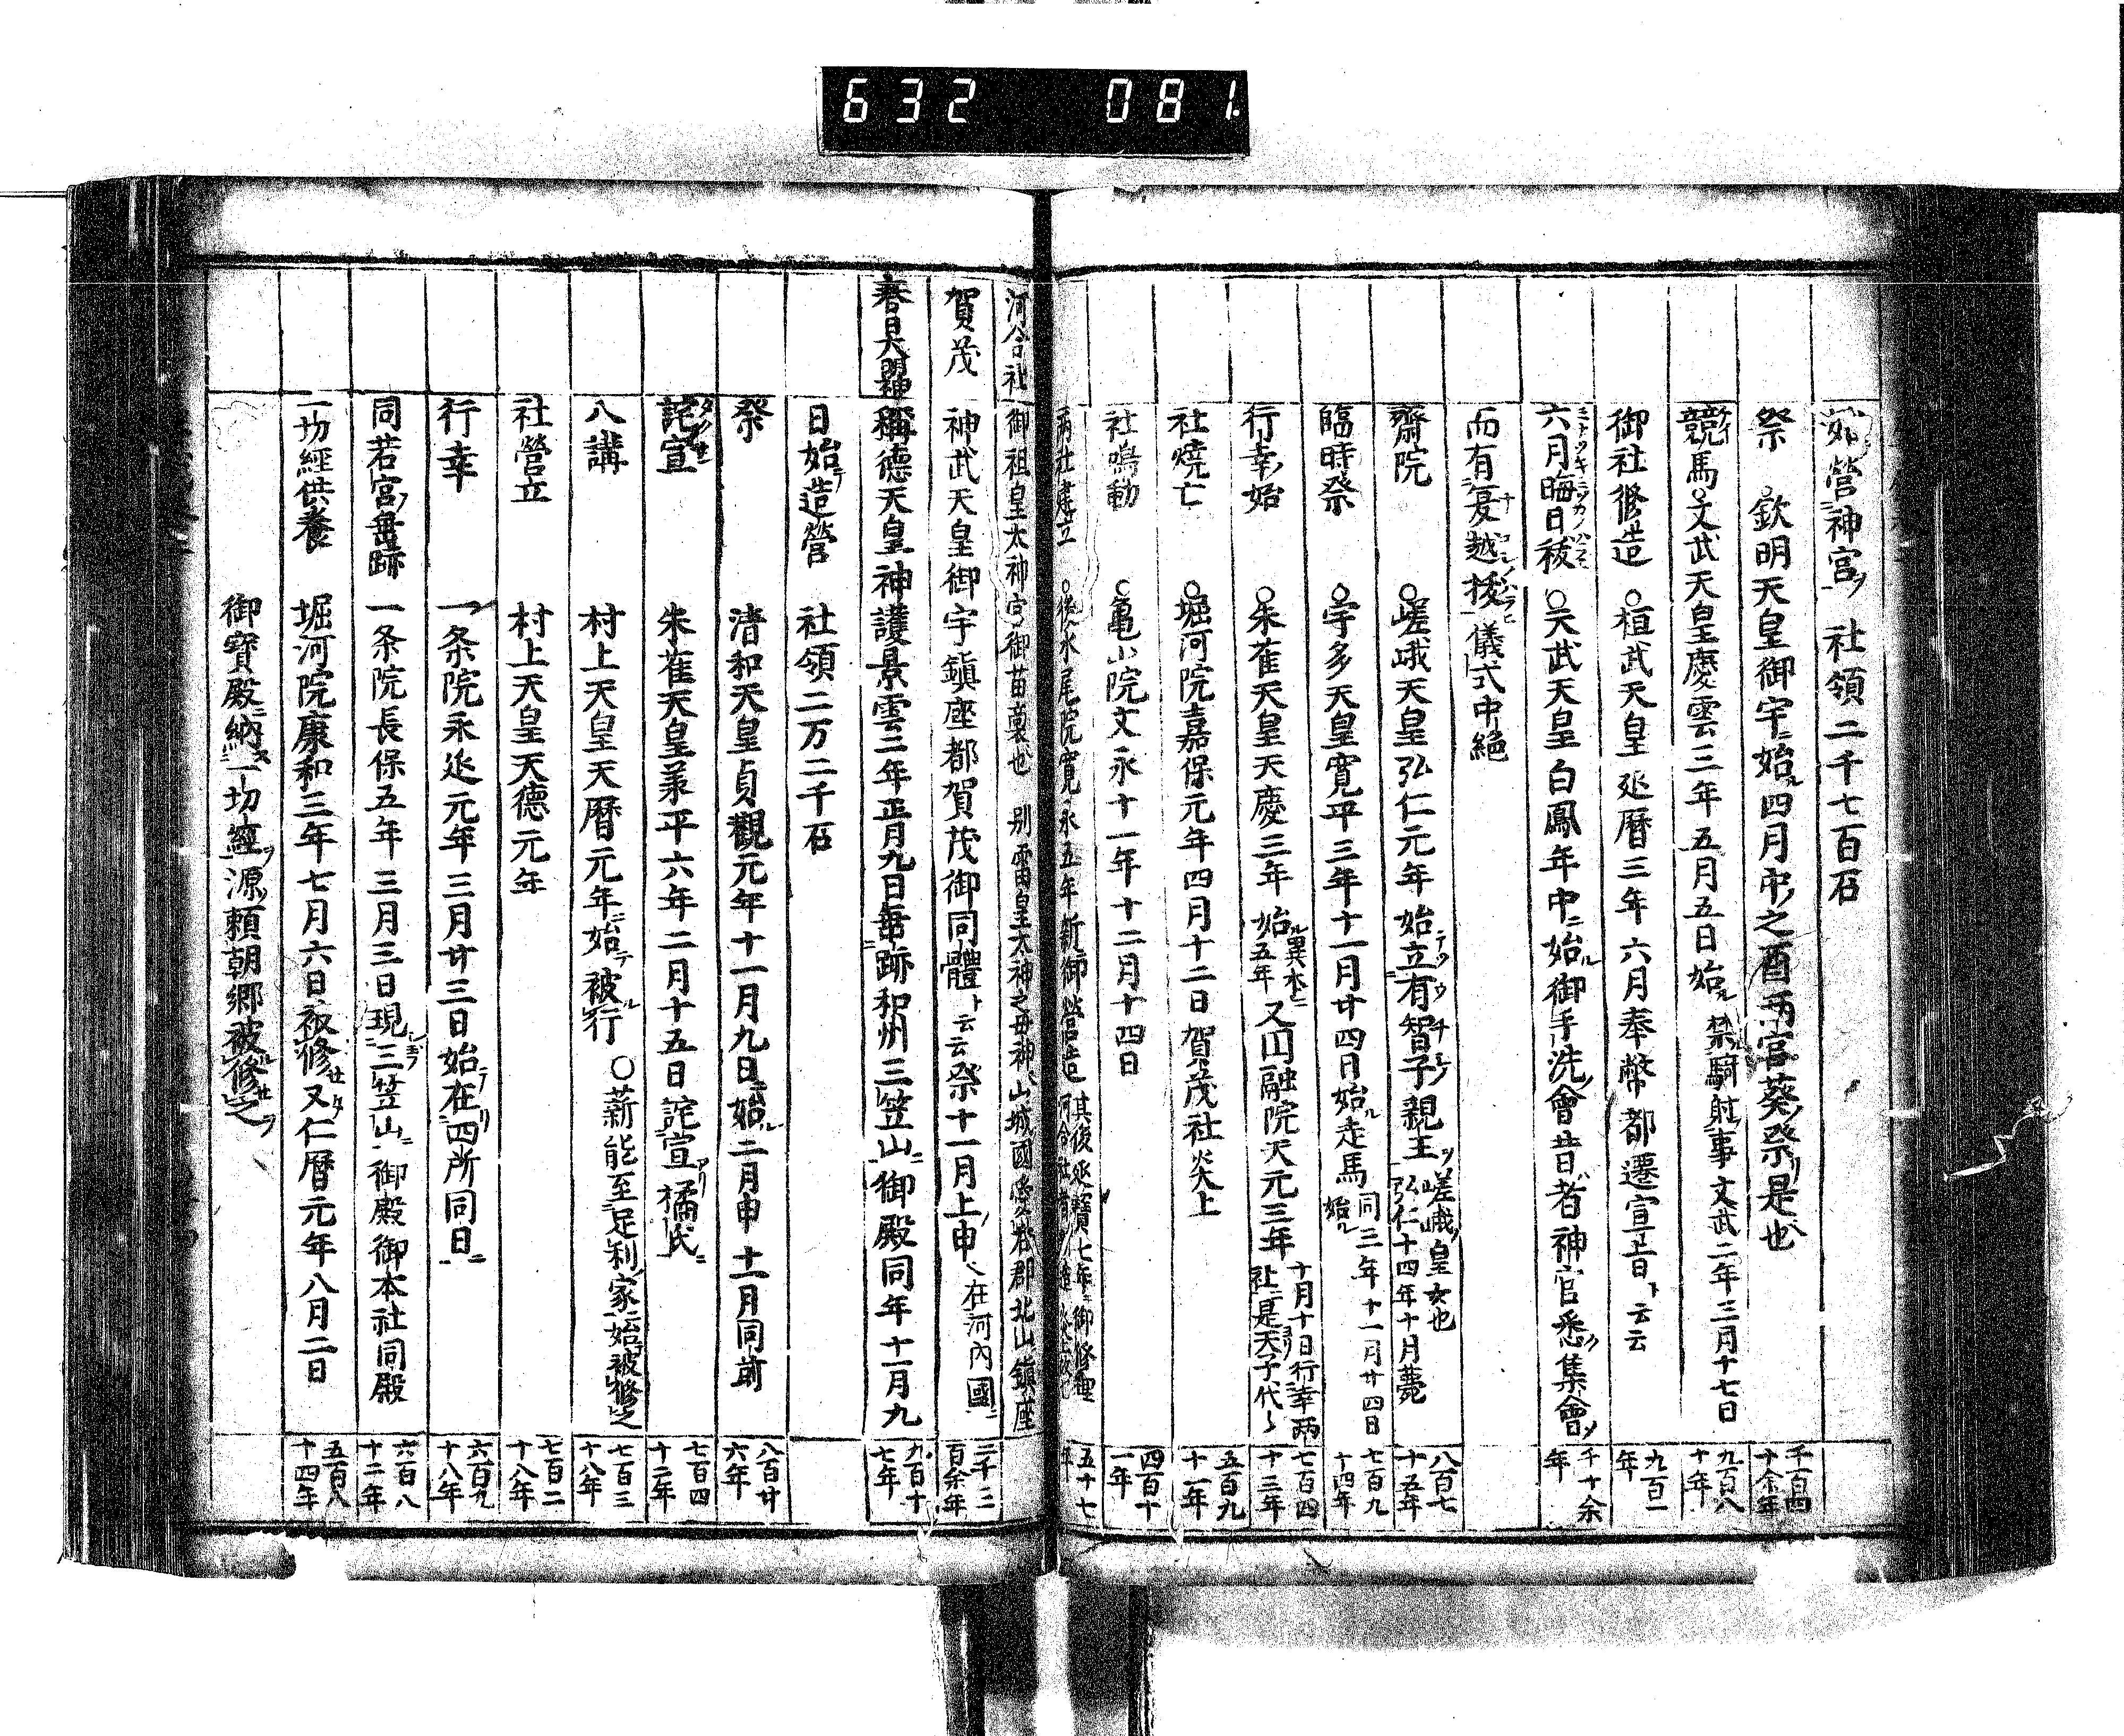 632 081
始営神宮ヲ 社領二千七百石
祭 欽明天皇御宇ニ始ル四月中ノ之酉両宮葵ノ祭リ是也 千百四十余年
競馬 文武天皇慶雲三年五月五日始ル 禁騎射事文武二年三月十七日 九百八十年
御社修造 ○桓武天皇延暦三年六月奉幣都遷宣旨ト云云 九百一年
六月晦日祓 ○天武天皇白鳳年中ニ始ル御手洗會昔ハ者神官悉ク集會ノ 千十余年
而有夏越祓儀式中絶
齋院 ○嵯峨天皇弘仁元年始テ立有智子親王ヲ 嵯峨ノ皇女也 弘仁十四年十月薨 八百七十五年
臨時祭 ○宇多天皇寛平三年十一月廿四月始ル走馬 同三年十一月廿四日始ル 七百九十四年
行幸始 ○朱雀天皇天慶三年始ル 異本ニ五年 又円融院天元三年 十月十日行幸両社ニ是天子代々 七百四十三年
社焼亡 ○堀河院嘉保元年四月十二日賀茂社炎上 五百九十一年
社鳴動 ○亀山院文永十一年十二月十四日 四百十一年
両社建立 ○後水尾院寛永五年新ニ御營造 其後延寶七年ニ御修理 五十七年
河合社 御祖皇太神宮御苗裔也 別雷皇太神之母神 山城國愛宕郡北山鎮座
賀茂 神武天皇御宇鎮座都賀茂御同體ト云云祭十一月上ノ申 在河内國ニ 二千三百余年
春日大明神 稱德天皇神護景雲二年正月九日垂跡和州三笠山ニ御殿同年十一月九 九百十七年
日始テ造營 社領二万二千石
祭 清和天皇貞觀元年十一月九日始ル二月申十一月同前 八百廿六年
詫宣 朱雀天皇承平六年二月十五日詫宣アリ橘氏ニ 七百四十二年
八講 村上天皇天暦元年ニ始テ被ル行 ○薪能至ニ足利家ニ始テ被修之 七百三十八年
社營立 村上天皇天德元年 七百二十八年
行幸 一条院永延元年三月廿三日始テ在リ四所同日ニ 六百九十八年
同若宮ノ垂跡 一条院長保五年三月三日現三笠山ニ御殿御本社同殿 六百八十二年
一切經供養 堀河院康和三年七月六日被修セタ又仁暦元年八月二日 五百八十四年
御寶殿ニ納ム一切經ヲ源ノ頼朝郷被修セラ之